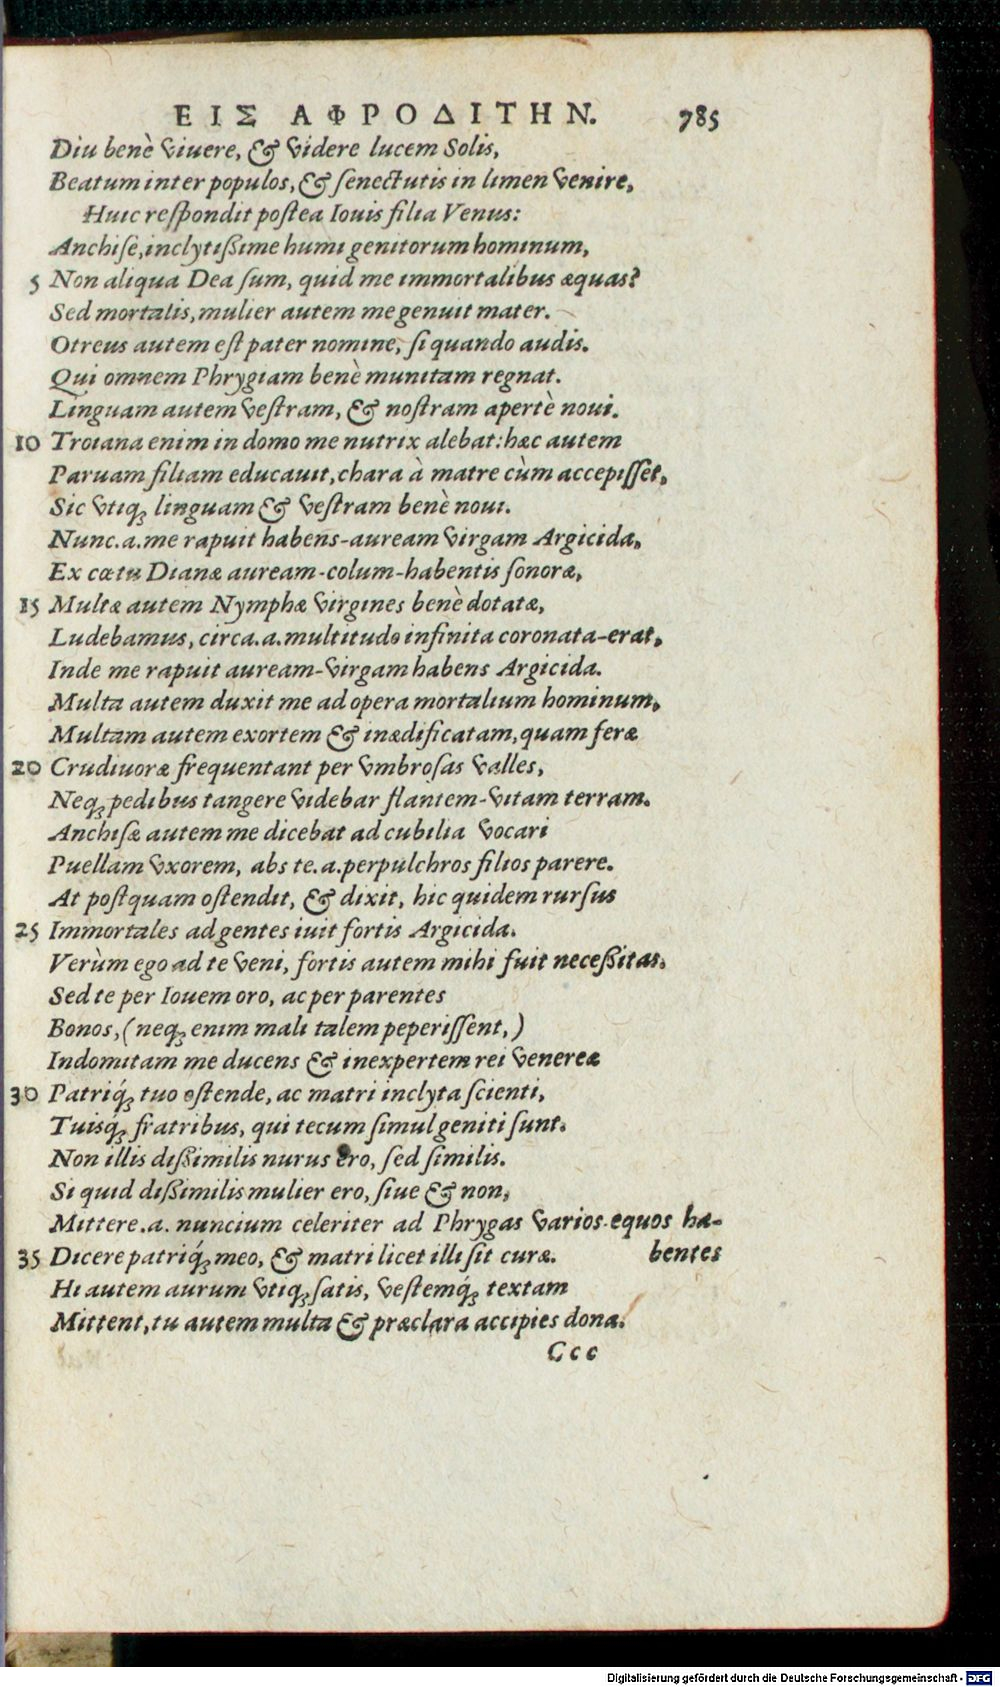 ΕΙΣ ΑΦΡΟΔΙΤΗΝ. 785
Diu benè viuere, & videre lucem Solis,
Beatum inter populos, & senectutis in limen venire,
Huic respondit postea Iouis filia Venus:
Anchise, inclytißime humi genitorum hominum,
5 Non aliqua Dea sum, quid me immortalibus æquas?
Sed mortalis, mulier autem me genuit mater.
Otreus autem est pater nomine, si quando audis.
Qui omnem Phrygiam benè munitam regnat.
Linguam autem vestram, & nostram apertè noui.
10 Troiana enim in domo me nutrix alebat: hæc autem
Paruam filiam educauit, chara à matre cùm accepisset,
Sic vtiq; linguam & vestram benè noui.
Nunc.a.me rapuit habens-auream virgam Argicida,
Ex cœtu Dianæ auream-colum-habentis sonoræ,
15 Multæ autem Nymphæ virgines benè dotatæ,
Ludebamus, circa.a.multitudo infinita coronata-erat,
Inde me rapuit auream-virgam habens Argicida.
Multa autem duxit me ad opera mortalium hominum,
Multam autem exortem & inædificatam, quam feræ
20 Crudiuoræ frequentant per vmbrosas valles,
Neq; pedibus tangere videbar flantem-vitam terram.
Anchisæ autem me dicebat ad cubilia vocari
Puellam vxorem, abs te.a.perpulchros filios parere.
At postquam ostendit, & dixit, hic quidem rursus
25 Immortales ad gentes iuit fortis Argicida.
Verùm ego ad te veni, fortis autem mihi fuit neceßitas.
Sed te per Iouem oro, ac per parentes
Bonos, (neq; enim mali talem peperissent,)
Indomitam me ducens & inexpertem rei venereæ
30 Patriq́; tuo ostende, ac matri inclyta scienti,
Tuisq́; fratribus, qui tecum simul geniti sunt.
Non illis dißimilis nurus ero, sed similis.
Si quid dißimilis mulier ero, siue & non,
Mittere.a. nuncium celeriter ad Phrygas varios-equos ha-
35 Dicere patriq́; meo, & matri licet illi sit curæ. bentes
Hi autem aurum vtiq; satis, vestemq́; textam
Mittent, tu autem multa & præclara accipies dona.
Ccc
Digitalisierung gefördert durch die Deutsche Forschungsgemeinschaft - DFG